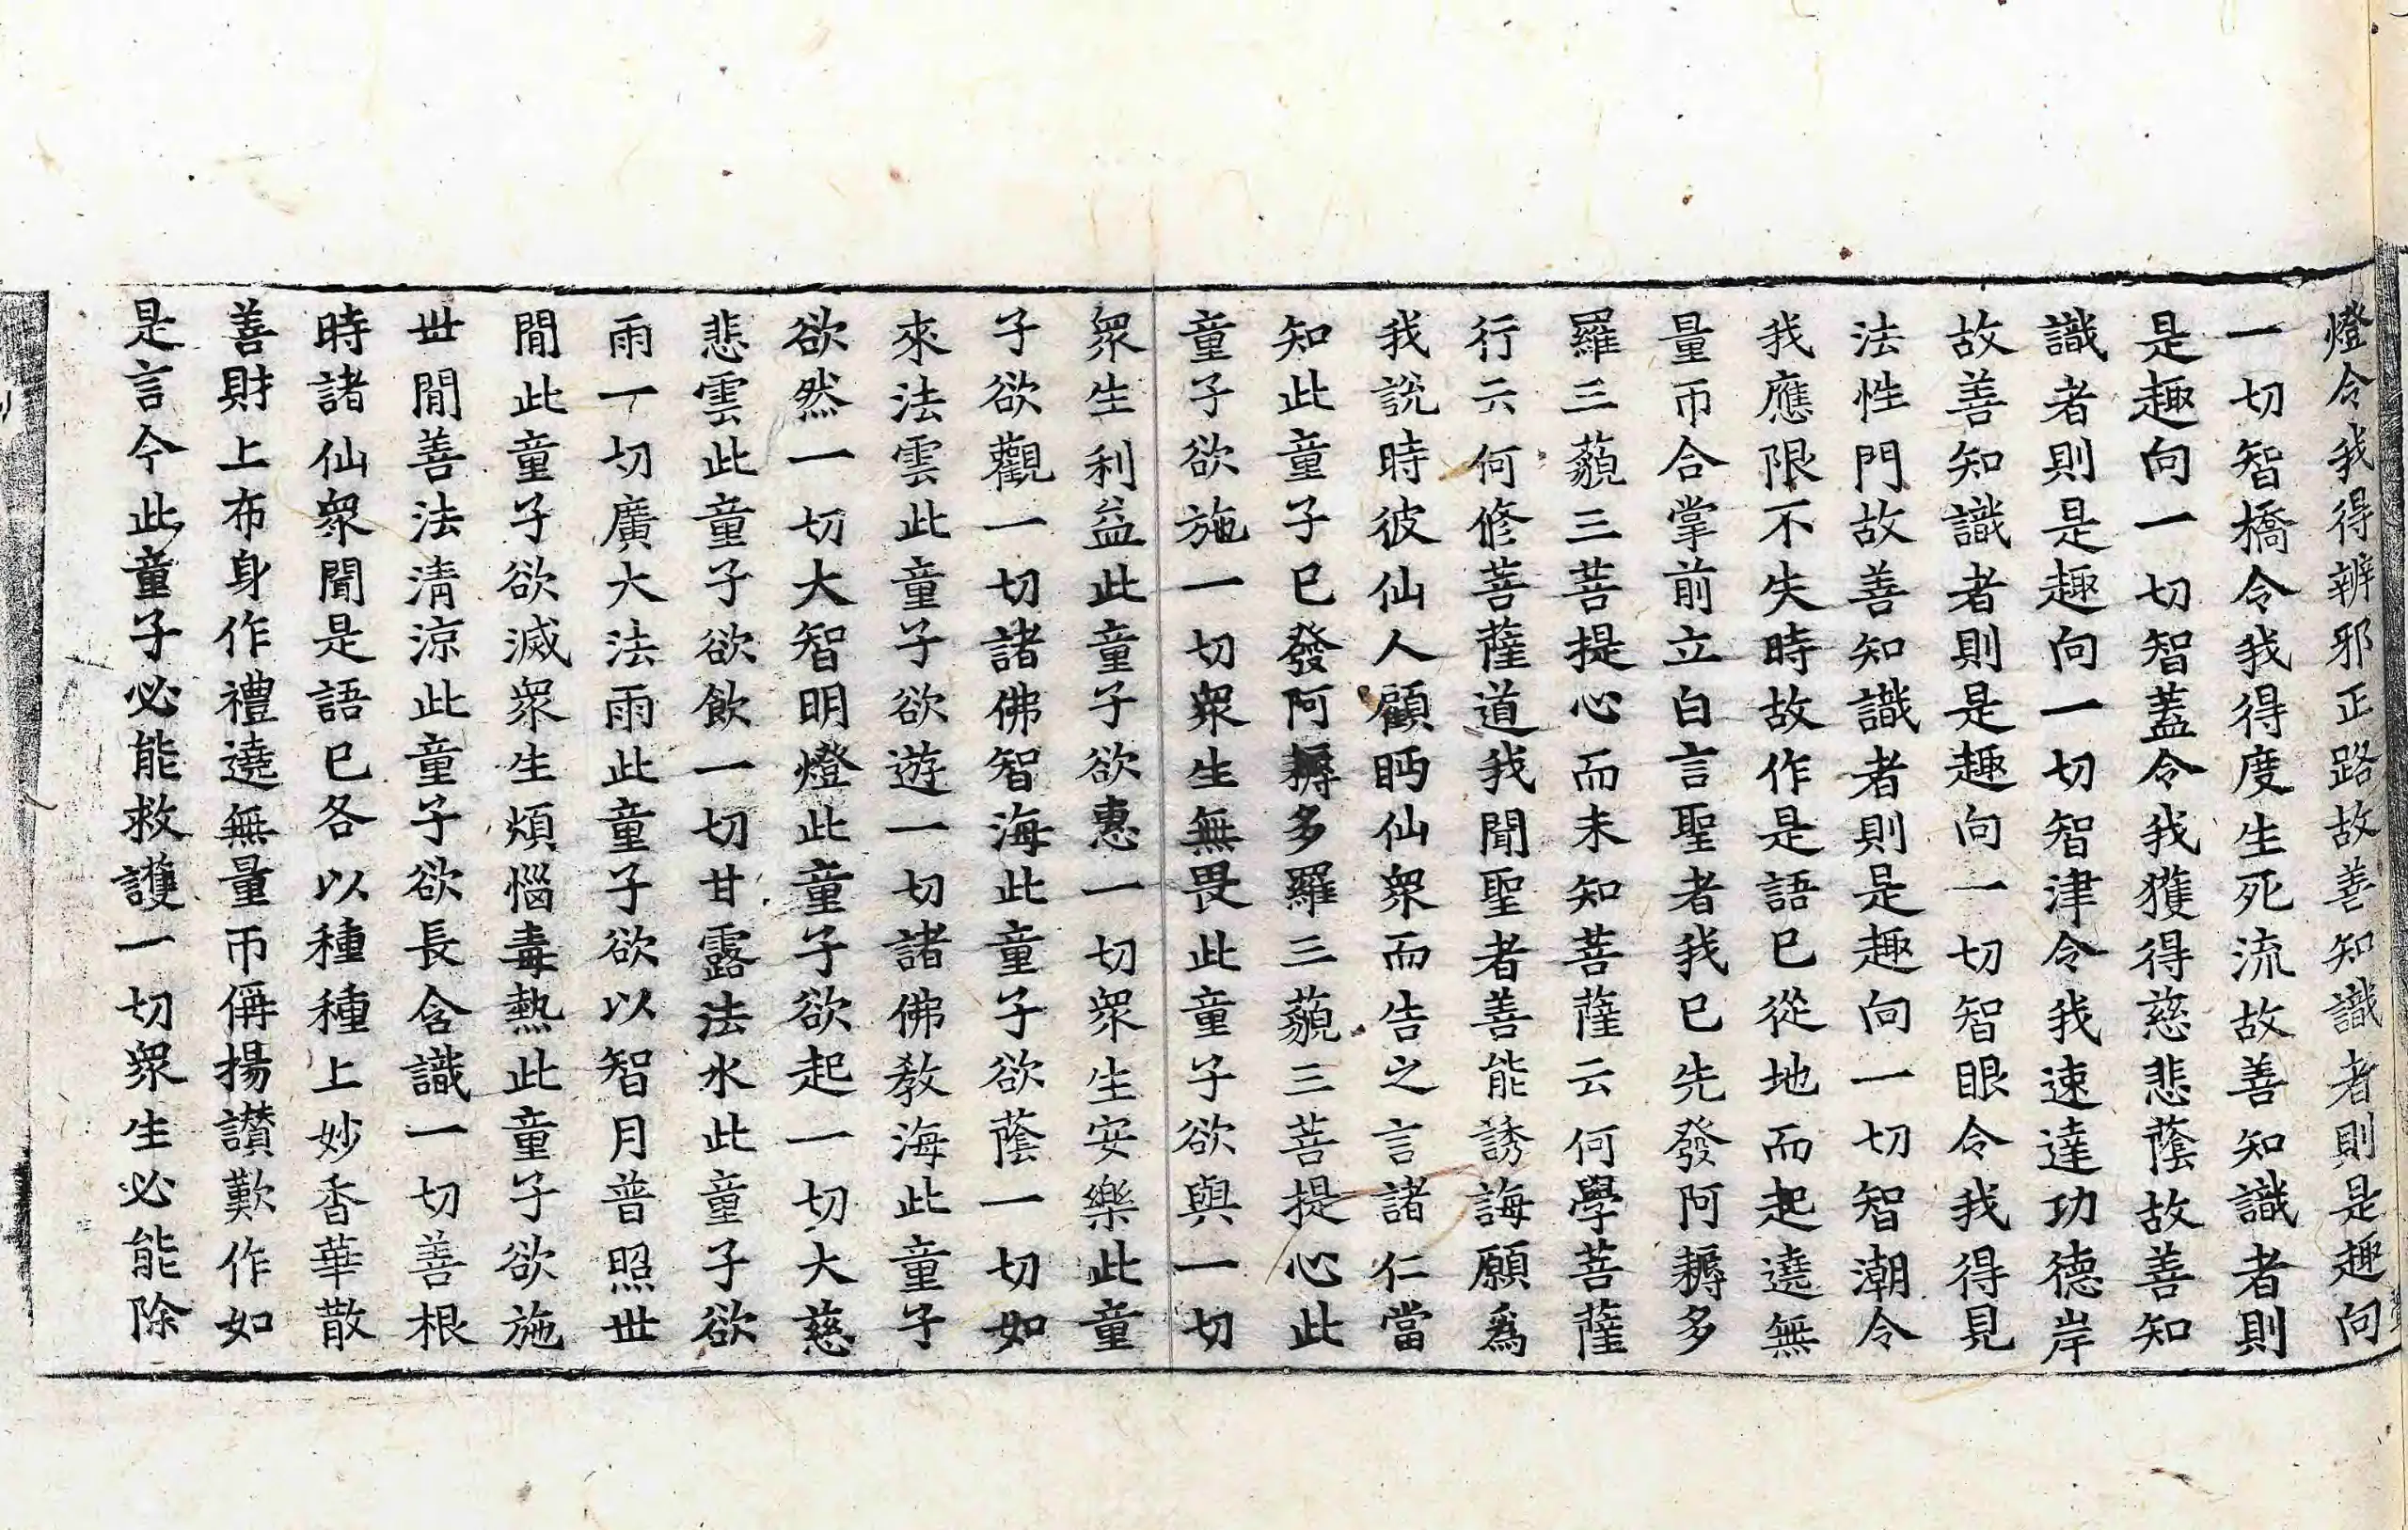 燈令我得辨邪正路故善知識者則是趣向
一切智橋令我得度生死流故善知識者則
是趣向一切智蓋令我獲得慈悲蔭故善知
識者則是趣向一切智津令我速達功德岸
故善知識者則是趣向一切智眼令我得見
法性門故善知識者則是趣向一切智潮令
我應限不失時故作是語已從地而起遶無
量帀合掌前立白言聖者我已先發阿耨多
羅三藐三菩提心而未知菩薩云何學菩薩
行云何修菩薩道我聞聖者善能誘誨願爲
我說時彼仙人顧眄仙衆而告之言諸仁當
知此童子已發阿耨多羅三藐三菩提心此
童子欲施一切衆生無畏此童子欲與一切
衆生利益此童子欲惠一切衆生安樂此童
子欲觀一切諸佛智海此童子欲蔭一切如
來法雲此童子欲遊一切諸佛教海此童子
欲然一切大智明燈此童子欲起一切大慈
悲雲此童子欲飲一切甘露法水此童子欲
雨一切廣大法雨此童子欲以智月普照世
間此童子欲滅衆生煩惱毒熱此童子欲施
世間善法清涼此童子欲長含識一切善根
時諸仙衆聞是語已各以種種上妙香華散
善財上布身作禮遶無量帀偁揚讃歎作如
是言今此童子必能救護一切衆生必能除